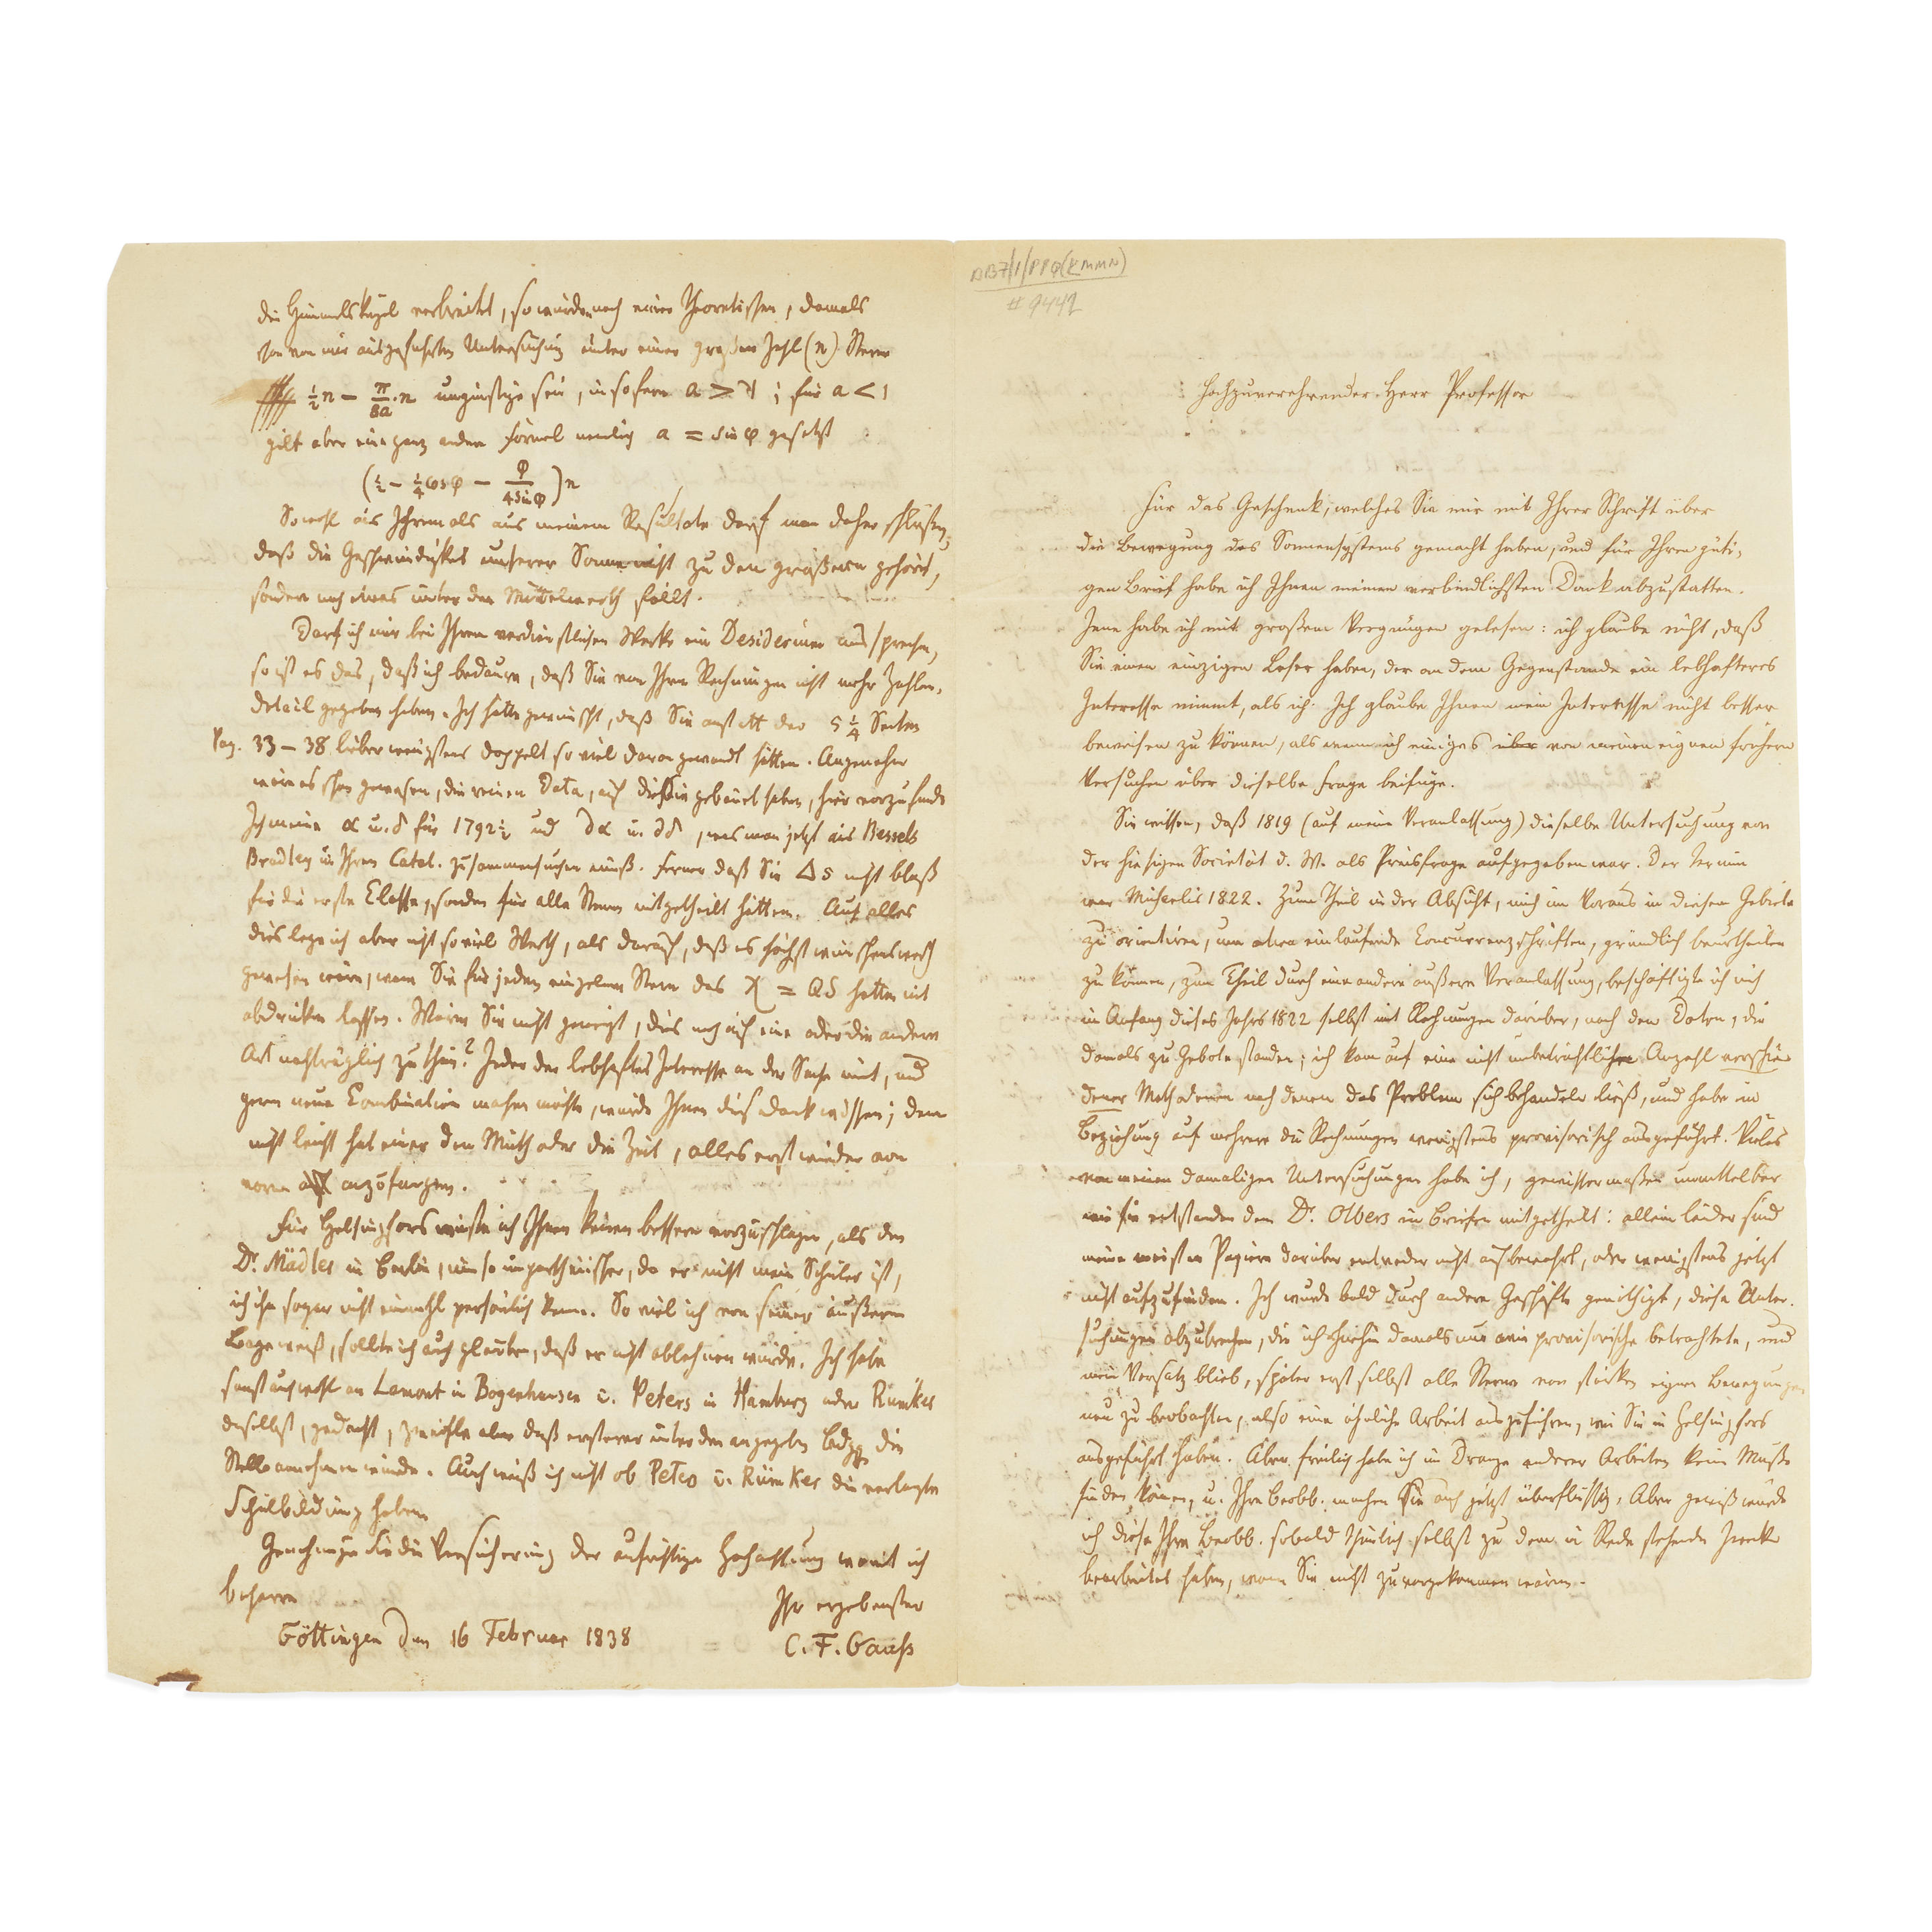 DB7/1/PPQ(KMMN)
# 9449
Hochzuverehrender Herr Professor
Für das Geschenk, welches Sie mir mit Ihrer Schrift über
die Bewegung des Sonnensystems gemacht haben, und für Ihren güti-
gen Brief habe ich Ihnen meinen verbindlichsten Dank abzustatten.
Jene habe ich mit großem Vergnügen gelesen: ich glaube nicht, daß
Sie einen einzigen Leser haben, der an dem Gegenstande ein lebhafteres
Interesse nimmt, als ich. Ich glaube Ihnen mein Interesse nicht besser
beweisen zu können, als wenn ich einiges über von meinen eignen frühern
Versuchen über dieselbe Frage beifüge.
Sie wissen, daß 1819 (auf meine Veranlassung) dieselbe Untersuchung von
der hiesigen Societät d. W. als Preisfrage aufgegeben war. Der Termin
war Michaelis 1822. Zum Theil in der Absicht, mich im Voraus in diesem Gebiete
zu orientiren, um etwa einlaufende Concurrenzschriften, gründlich beurtheilen
zu können, zum Theil durch eine andere äußere Veranlassung, beschäftigte ich mich
im Anfang dieses Jahrs 1822 selbst mit Rechnungen darüber, nach den Daten, die
damals zu Gebote standen; ich kam auf eine nicht unbeträchtliche Anzahl verschie-
dener Methoden nach denen das Problem sich behandeln ließ, und habe in
Beziehung auf mehrere die Rechnungen wenigstens provisorisch ausgeführt. Vieles
von meinen damaligen Untersuchungen habe ich, gewissermaßen unmittelbar
wie sie entstanden dem Dr. Olbers in Briefen mitgetheilt: allein leider sind
meine meisten Papiere darüber entweder nicht aufbewahrt, oder wenigstens jetzt
nicht aufzufinden. Ich wurde bald durch andere Geschäfte genöthigt, diese Unter-
suchungen abzubrechen, die ich ohnehin damals nur wie provisorische betrachtete, und
mein Vorsatz blieb, später erst selbst alle Sterne von starken eignen Bewegungen
neu zu beobachten, also eine ähnliche Arbeit auszuführen, wie Sie in Helsingfors
ausgeführt haben. Aber freilich habe ich im Drange anderer Arbeiten keine Muße
finden können, u. Ihre Beobb. machen sie auch jetzt überflüssig. Aber gewiß würde
ich diese Ihre Beobb. sobald thunlich selbst zu dem in Rede stehenden Zwecke
bearbeitet haben, wenn Sie nicht zuvorgekommen wären.
die Himmelskugel verbreitet, so würden nach einer theoretischen, damals
schon von mir ausgeführten Untersuchung unter einer großen Zahl (n) Sterne
½n − π/8a · n ungünstige sein, in sofern a > 1; für a < 1
gilt aber eine ganz andere Formel nemlich a = sin φ gesetzt
(½ − ¼cos φ − φ/4 sin φ) n
Sowohl aus Ihrem als aus meinem Resultate darf man daher schließen,
daß die Geschwindigkeit unserer Sonne nicht zu den größern gehört,
sondern noch etwas unter den Mittelwerth fällt.
Darf ich mir bei Ihrem verdienstlichen Werke ein Desiderium aussprechen,
so ist es das, daß ich bedaure, daß Sie von Ihren Rechnungen nicht mehr Zahlen-
detail gegeben haben. Ich hätte gewünscht, daß Sie anstatt der 5¼ Seiten
Pag. 33 – 38 lieber wenigstens doppelt so viel daran gewandt hätten. Angenehm
wäre es schon gewesen, die reinen Data, auf die Sie gebauet haben, hier vorzufinden
Ich meine α u. δ für 1792½ und dα u. dδ, was man jetzt aus Bessels
Bradley u. Ihrem Catal. zusammensuchen muß. Ferner daß Sie Δs nicht bloß
für die erste Classe, sondern für alle Sterne mitgetheilt hätten. Auf alles
dies lege ich aber nicht so viel Werth, als darauf, daß es höchst wünschenswerth
gewesen wäre, wenn Sie für jeden einzelnen Stern das χ = QS hätten mit
abdrucken lassen. Wären Sie nicht geneigt, dies noch auf eine oder die andere
Art nachträglich zu thun? Jeder der lebhaftes Interesse an der Sache nimt, und
gern neue Combination machen möchte, würde Ihnen dies Dank wissen; denn
nicht leicht hat einer den Muth oder die Zeit, alles erst wieder von
vorn anzufangen.
Für Helsingfors wüßte ich Ihnen keinen bessern vorzuschlagen, als den
Dr. Mädler in Berlin, um so unpartheiischer, da er nicht mein Schüler ist,
ich ihn sogar nicht einmahl persönlich kenne. So viel ich von seiner äußern
Lage weiß, sollte ich auch glauben, daß er nicht ablehnen würde. Ich habe
sonst auch wohl an Lamont in Bogenhausen u. Peters in Hamburg oder Rümker
daselbst, gedacht, zweifle aber daß ersterer unter den angegeben Bdgg die
Stelle annehmen würde. Auch weiß ich nicht ob Peters u. Rümker die verlangte
Schulbildung haben
Genehmigen Sie die Versicherung der aufrichtigen Hochachtung womit ich
beharre
Ihr ergebenster
Göttingen den 16 Februar 1838
C. F. Gauss